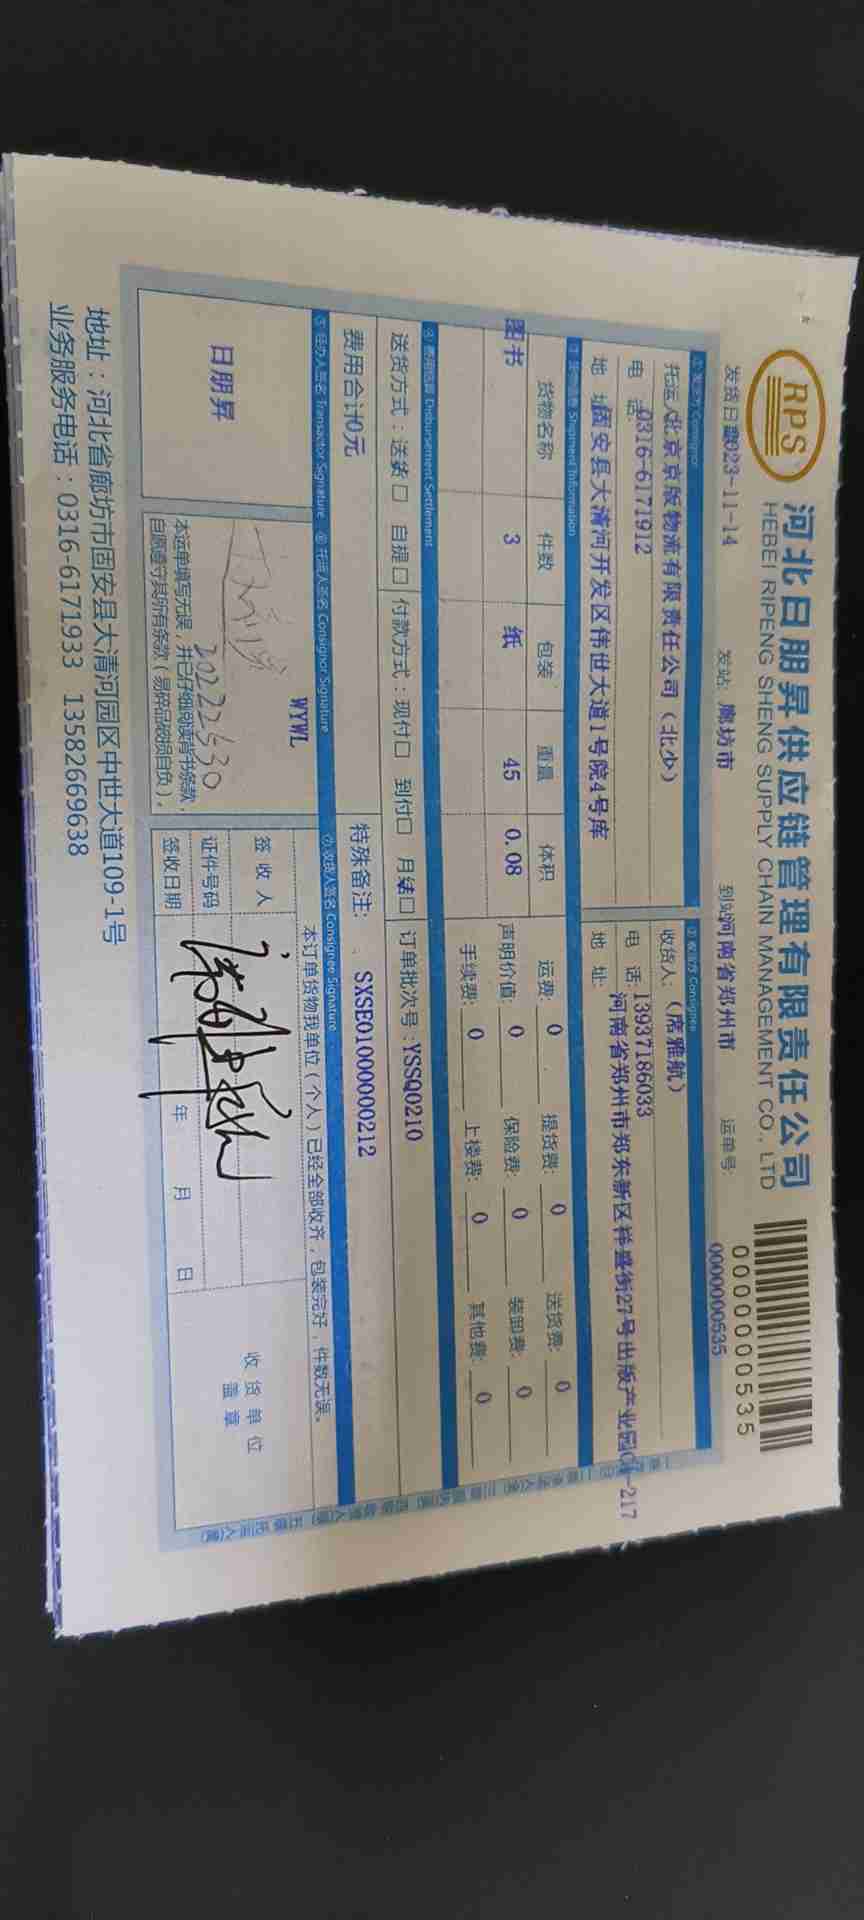 RPS
河北日朋昇供应链管理有限责任公司
HEBEI RIPENG SHENG SUPPLY CHAIN MANAGEMENT CO., LTD
0000000535
发货日期2023-11-14 发站: 廊坊市 到站河南省郑州市 运单号: 0000000535
① 发货方 Consignor ② 收货方 Consignee
托运人北京京版物流有限责任公司（北少） 收货人: （席雅航）
电 话:0316-6171912 电 话: 13937186033
地 址固安县大清河开发区伟世大道1号院4号库 地 址: 河南省郑州市郑东新区祥盛街27号出版产业园C1-217
③ 货物信息 Shipment Information
货物名称 件数 包装 重量 体积 运费: 0 提货费: 0 送货费: 0
图书 3 纸 45 0.08 声明价值: 0 保险费: 0 装卸费: 0
手续费: 0 上楼费: 0 其他费: 0
④ 费用结算 Disbursement Settlement
送货方式：送货☐ 自提☐ 付款方式：现付☐ 到付☐ 月结☐ 订单批次号：YSSQ0210
费用合计0元 特殊备注: SXSE01000000212
⑤ 经办人签名 Transactor Signature ⑥ 托运人签名 Consignor Signature ⑦ 收货人签名 Consignee Signature
日朋昇 WYWL
本订单货物我单位（个人）已经全部收齐，包装完好，件数无误。
签 收 人
证件号码
签收日期 年 月 日
收 货 单 位
盖 章
本运单填写无误，并已仔细阅读背书条款，
自愿遵守其所有条款（易碎品破损自负）。
地址：河北省廊坊市固安县大清河园区中世大道109-1号
业务服务电话：0316-6171933 13582669638